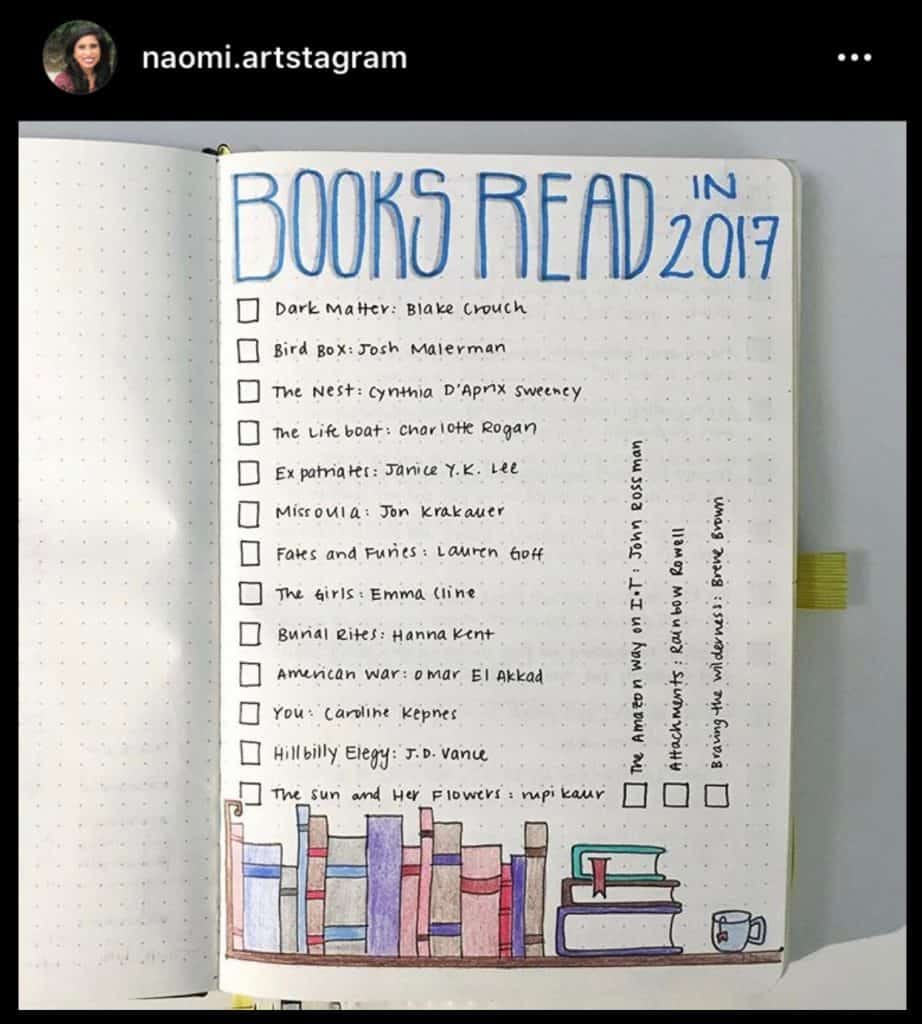 naomi.artstagram
BOOKS READ IN 2017
Dark Matter: Blake Crouch
Bird Box: Josh Malerman
The Nest: Cynthia D'Aprix Sweeney
The Lifeboat: Charlotte Rogan
Expatriates: Janice Y.K. Lee
Missoula: Jon Krakauer
Fates and Furies: Lauren Goff
The Girls: Emma Cline
Burial Rites: Hanna Kent
American War: Omar El Akkad
You: Caroline Kepnes
Hillbilly Elegy: J.D. Vance
The Sun and Her Flowers: rupi kaur
The Amazon Way on I•T: John Rossman
Attachments: Rainbow Rowell
Braving the wilderness: Brene Brown